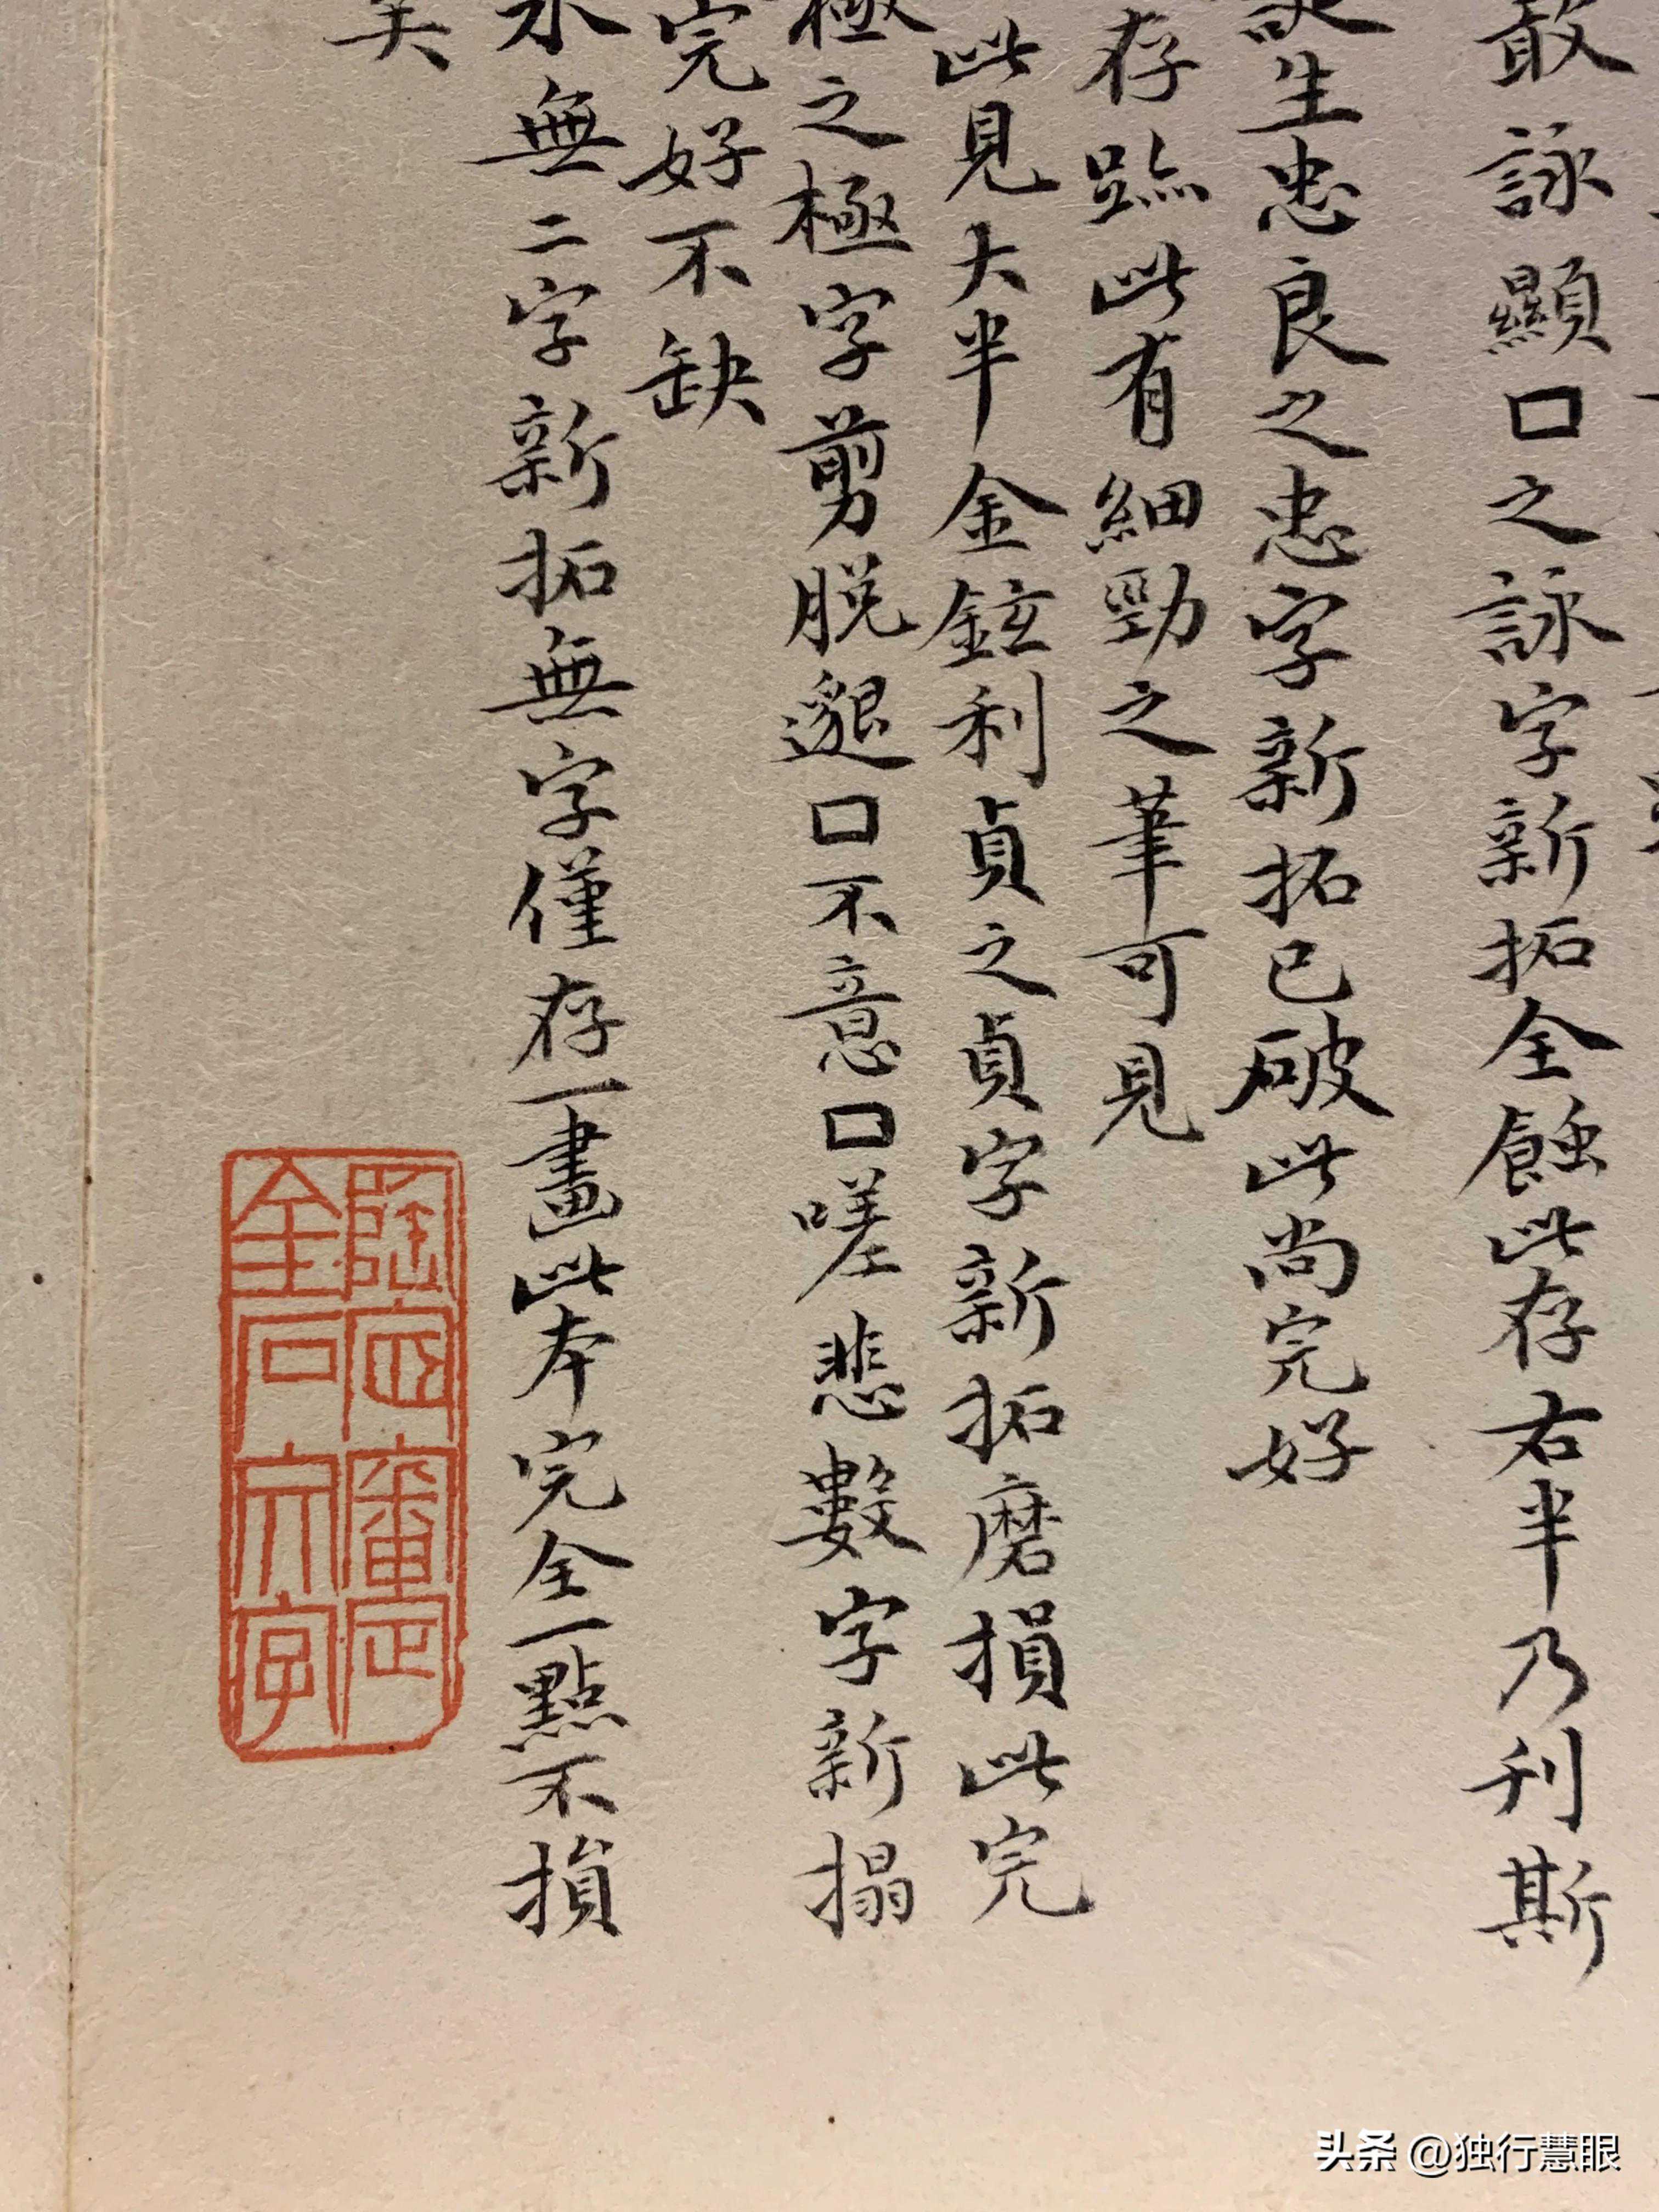 敢詠顯口之詠字新拓全蝕此存右半乃刋斯
生忠良之忠字新拓已破此尚完好
存跡此有細勁之筆可見
此見大半金鉉利貞之貞字新拓磨損此完
極之極字剪脱邈口不意口嗟悲數字新搨
完好不缺
永無二字新拓無字僅存一畫此本完全一點不損
矣
陶齋審定
金石文字
头条 @独行慧眼